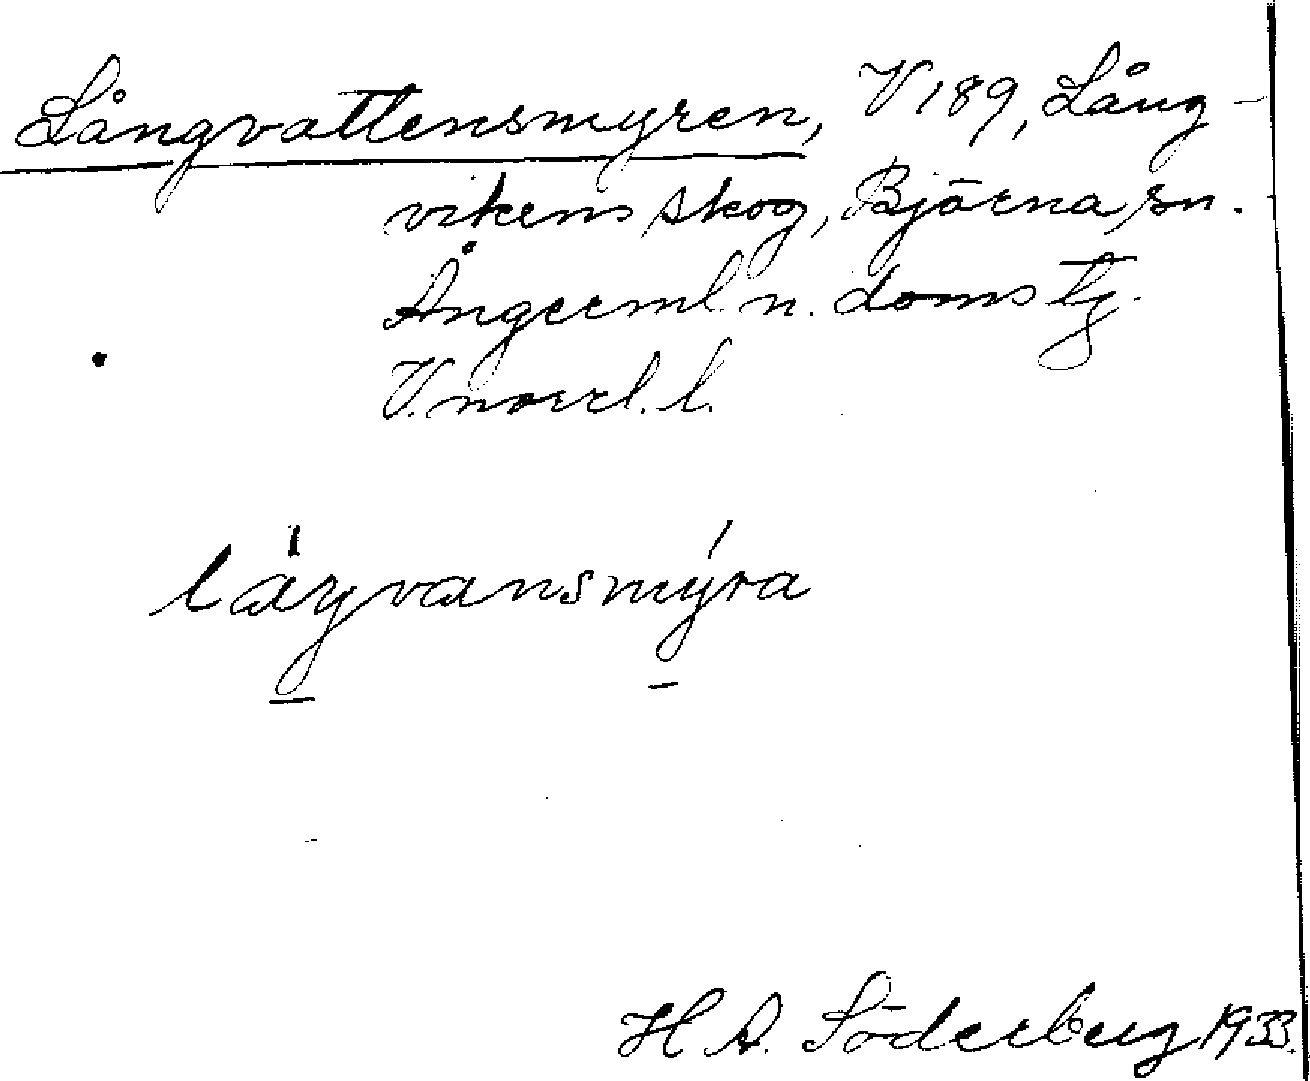 Långvattensmyren, V 189, Lång-
vikens skog, Björna sn.
Ångerml. n. doms tg.
V. norrl. l.
låŋvansmýra
H A. Söderberg 1933.